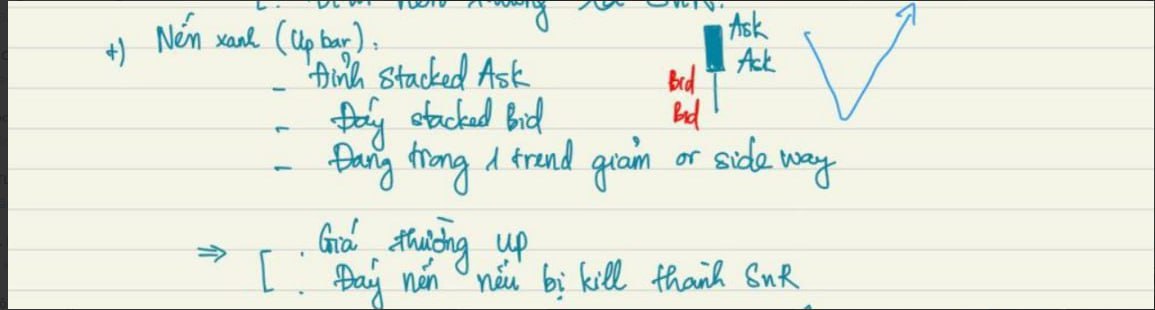 SnR.
+) Nến xanh (Up bar):
- Đỉnh stacked Ask
- Đáy stacked Bid
- Đang trong 1 trend giảm or side way
Ask
Ask
Bid
Bid
⇒ [ . Giá thường up
. Đáy nến nếu bị kill thành SnR